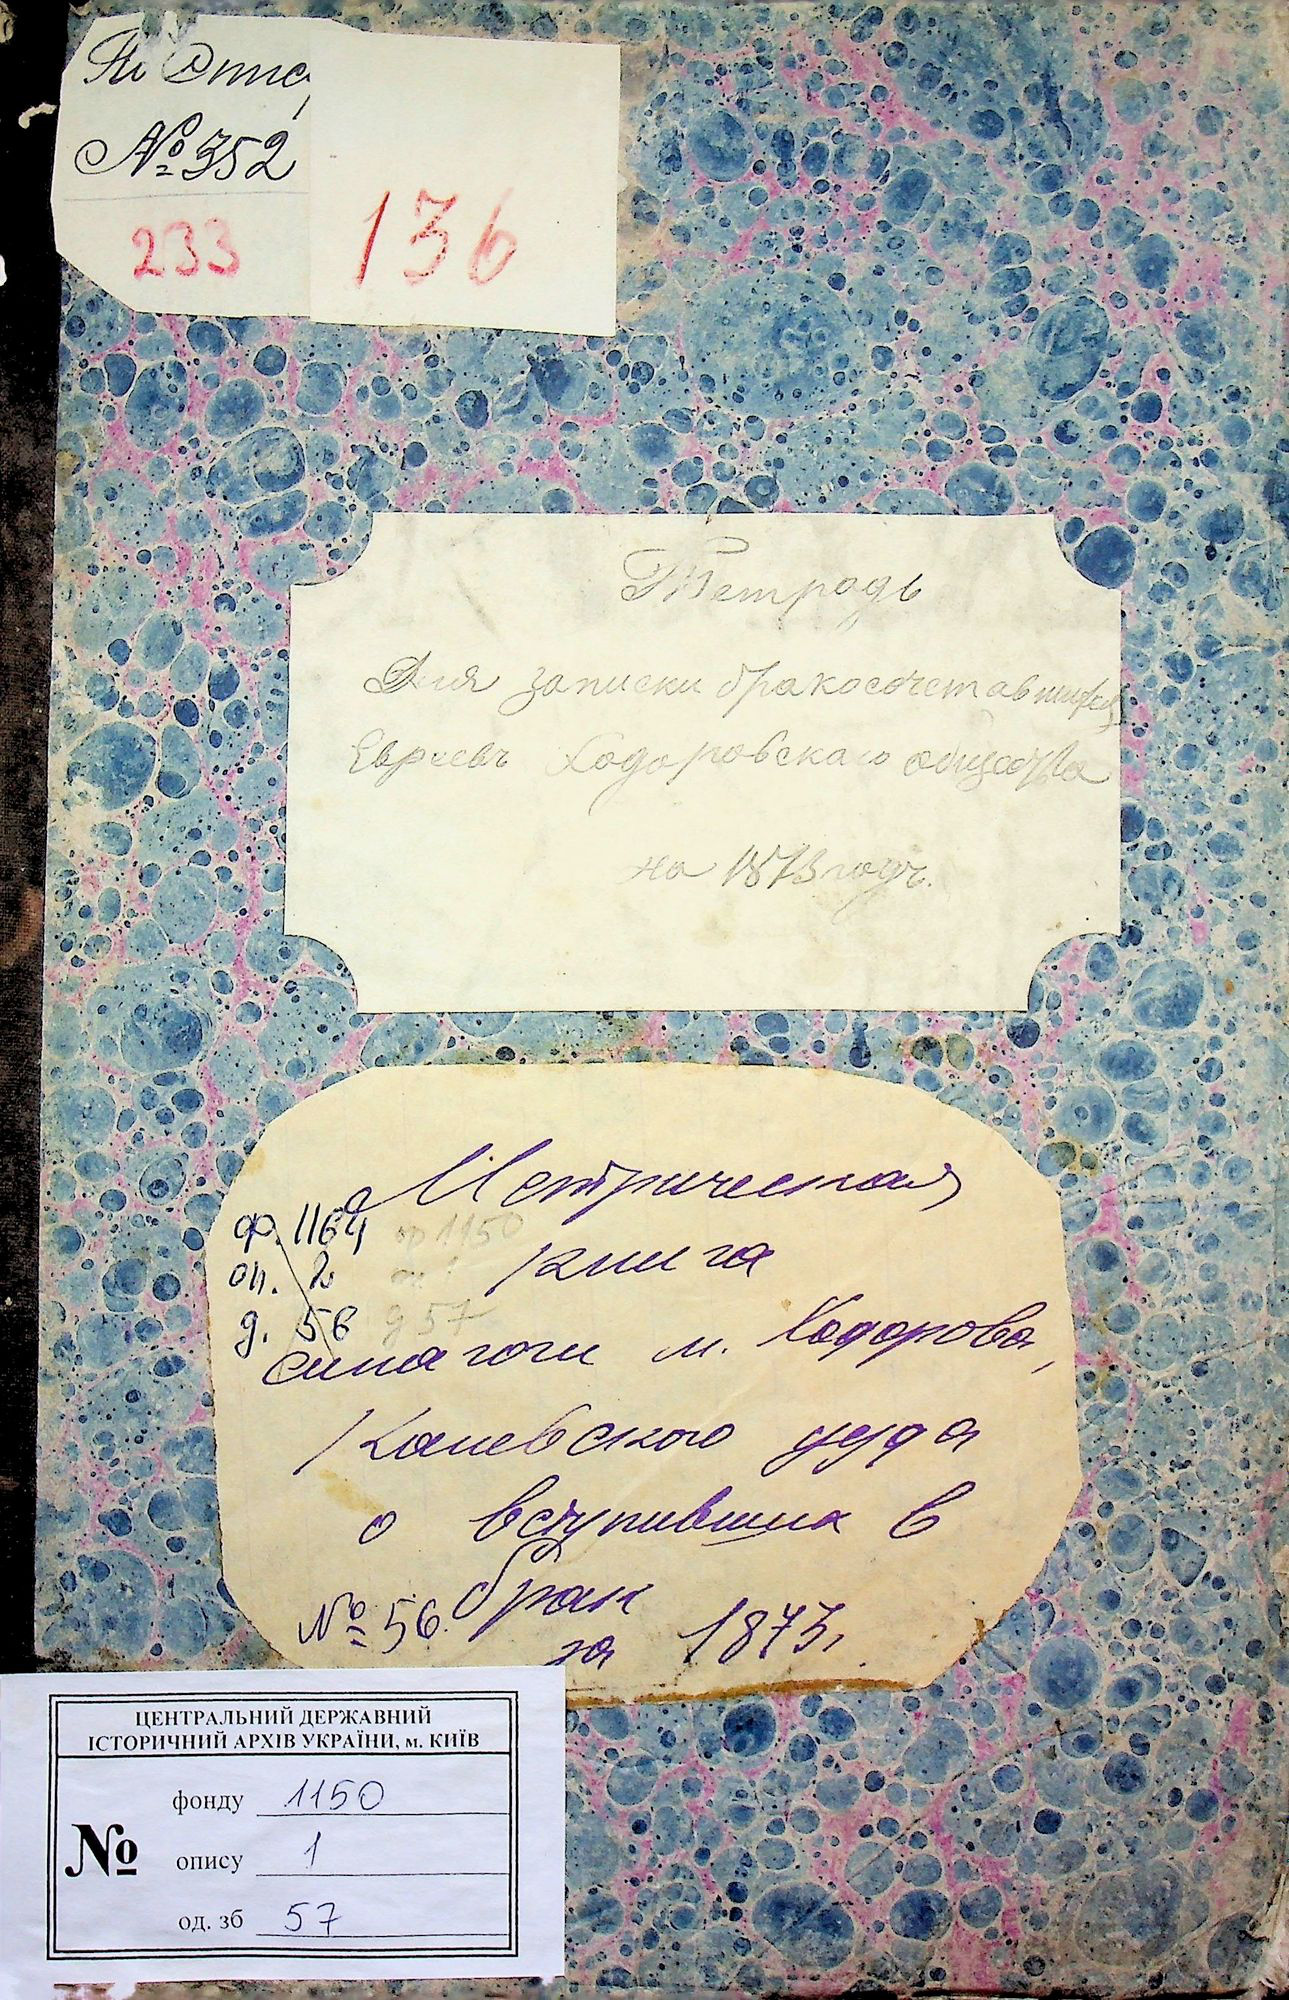 По Описи
№ 352
233
136
Тетрадь
Для записки бракосочетавшихся
Евреевъ Ходоровскаго общества
на 1873 годъ.
Метрическая
ф. 1164 ф 1150
книга
оп. 2 оп 1
д. 56 д 57
синагоги м. Ходорова,
Каневского уезда
о вступивших в
брак
№ 56.
за 1873.
ЦЕНТРАЛЬНИЙ ДЕРЖАВНИЙ
ІСТОРИЧНИЙ АРХІВ УКРАЇНИ, м. КИЇВ
№
фонду 1150
опису 1
од. зб 57